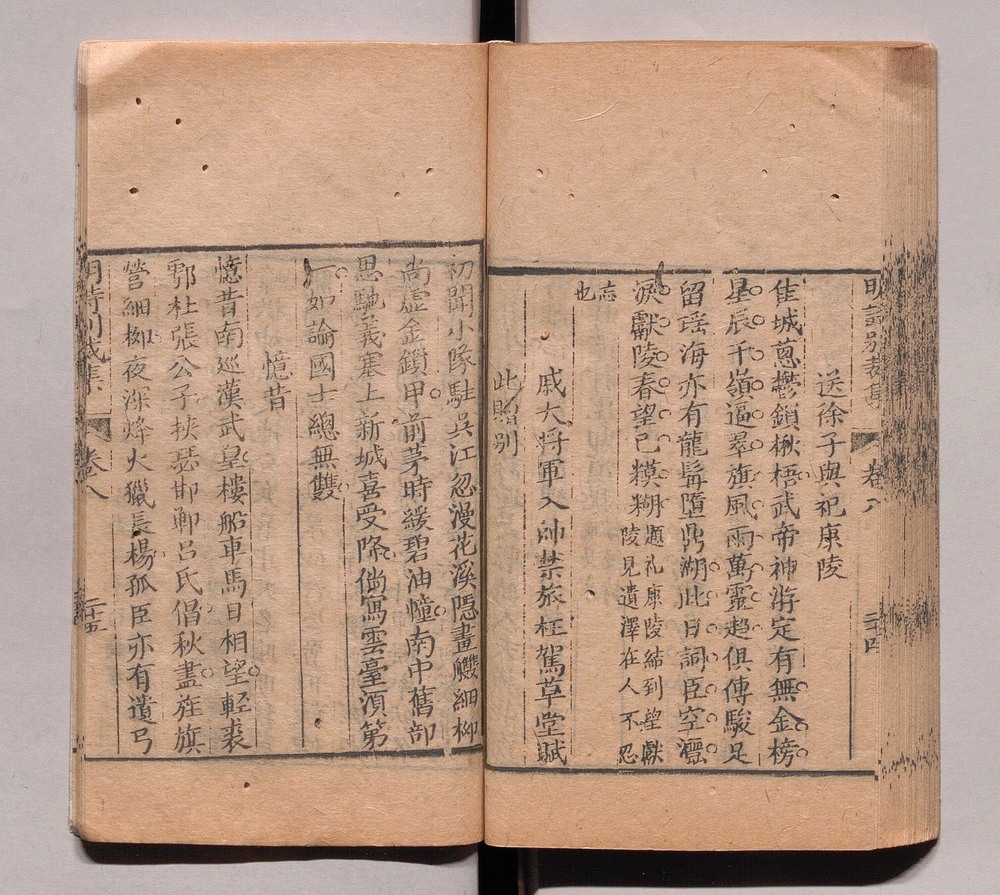 明詩別裁集
卷八
二十四
送徐子與祀康陵
佳城蔥鬱鎖楸梧武帝神游定有無金榜
星辰千嶺逼翠旗風雨萬靈趨俱傳駿足
留瑶海亦有龍髯墮鼎湖此日詞臣空灑
淚獻陵春望已糢糊題祀康陵結到望獻
陵見遺澤在人不忍
忘
也
戚大將軍入帥禁旅枉駕草堂賦
此贈別
初聞小隊駐吳江忽漫花溪隱畫艭細柳
尚虛金鎖甲前茅時緩碧油幢南中舊部
思馳義塞上新城喜受降倘寫雲臺須第
一如論國士總無雙
憶昔
憶昔南巡漢武皇樓船車馬日相望輕裘
鄠杜張公子挾瑟邯鄲呂氏倡秋盡旌旗
營細柳夜深烽火獵長楊孤臣亦有遺弓
卷八
二十五